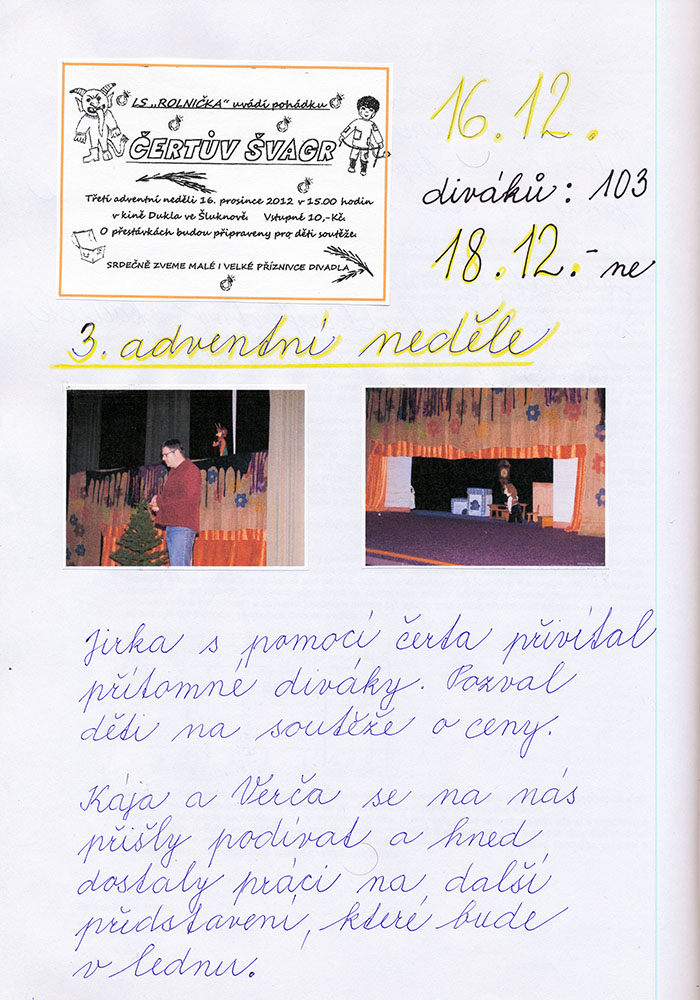 LS „ROLNIČKA“ uvádí pohádku
ČERTŮV ŠVAGR
Třetí adventní neděli 16. prosince 2012 v 15.00 hodin
v kině Dukla ve Šluknově. Vstupné 10,-Kč.
O přestávkách budou připraveny pro děti soutěže.
SRDEČNĚ ZVEME MALÉ I VELKÉ PŘÍZNIVCE DIVADLA
16.12.
diváků: 103
18.12.- ne
3. adventní neděle
Jirka s pomocí čerta přivítal
přítomné diváky. Pozval
děti na soutěže o ceny.
Kája a Verča se na nás
přišly podívat a hned
dostaly práci na další
představení, které bude
v lednu.